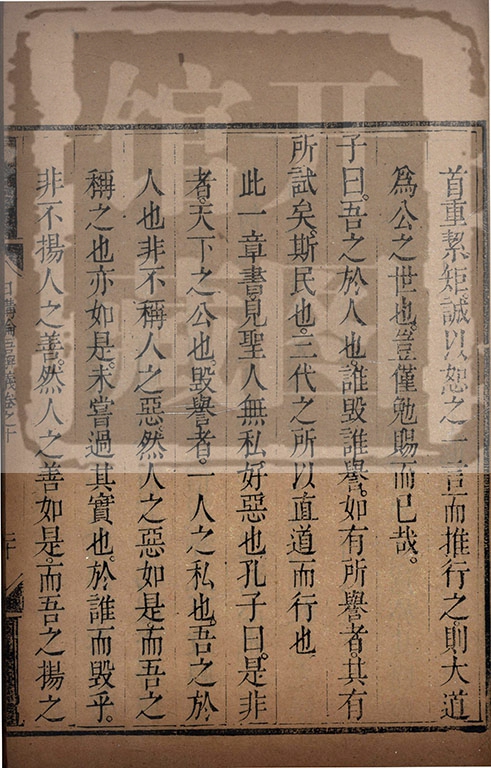 首重絜矩。誠以恕之一言而推行之。則大道
為公之世也。豈僅勉賜而已哉。
子曰。吾之於人也。誰毀誰譽。如有所譽者。其有
所試矣。斯民也。三代之所以直道而行也
此一章書。見聖人無私好惡也。孔子曰。是非
者。天下之公也。毀譽者。一人之私也。吾之於
人也。非不稱人之惡。然人之惡如是。而吾之
稱之也亦如是。未嘗過其實也。於誰而毀乎。
非不揚人之善。然人之善如是。而吾之揚之